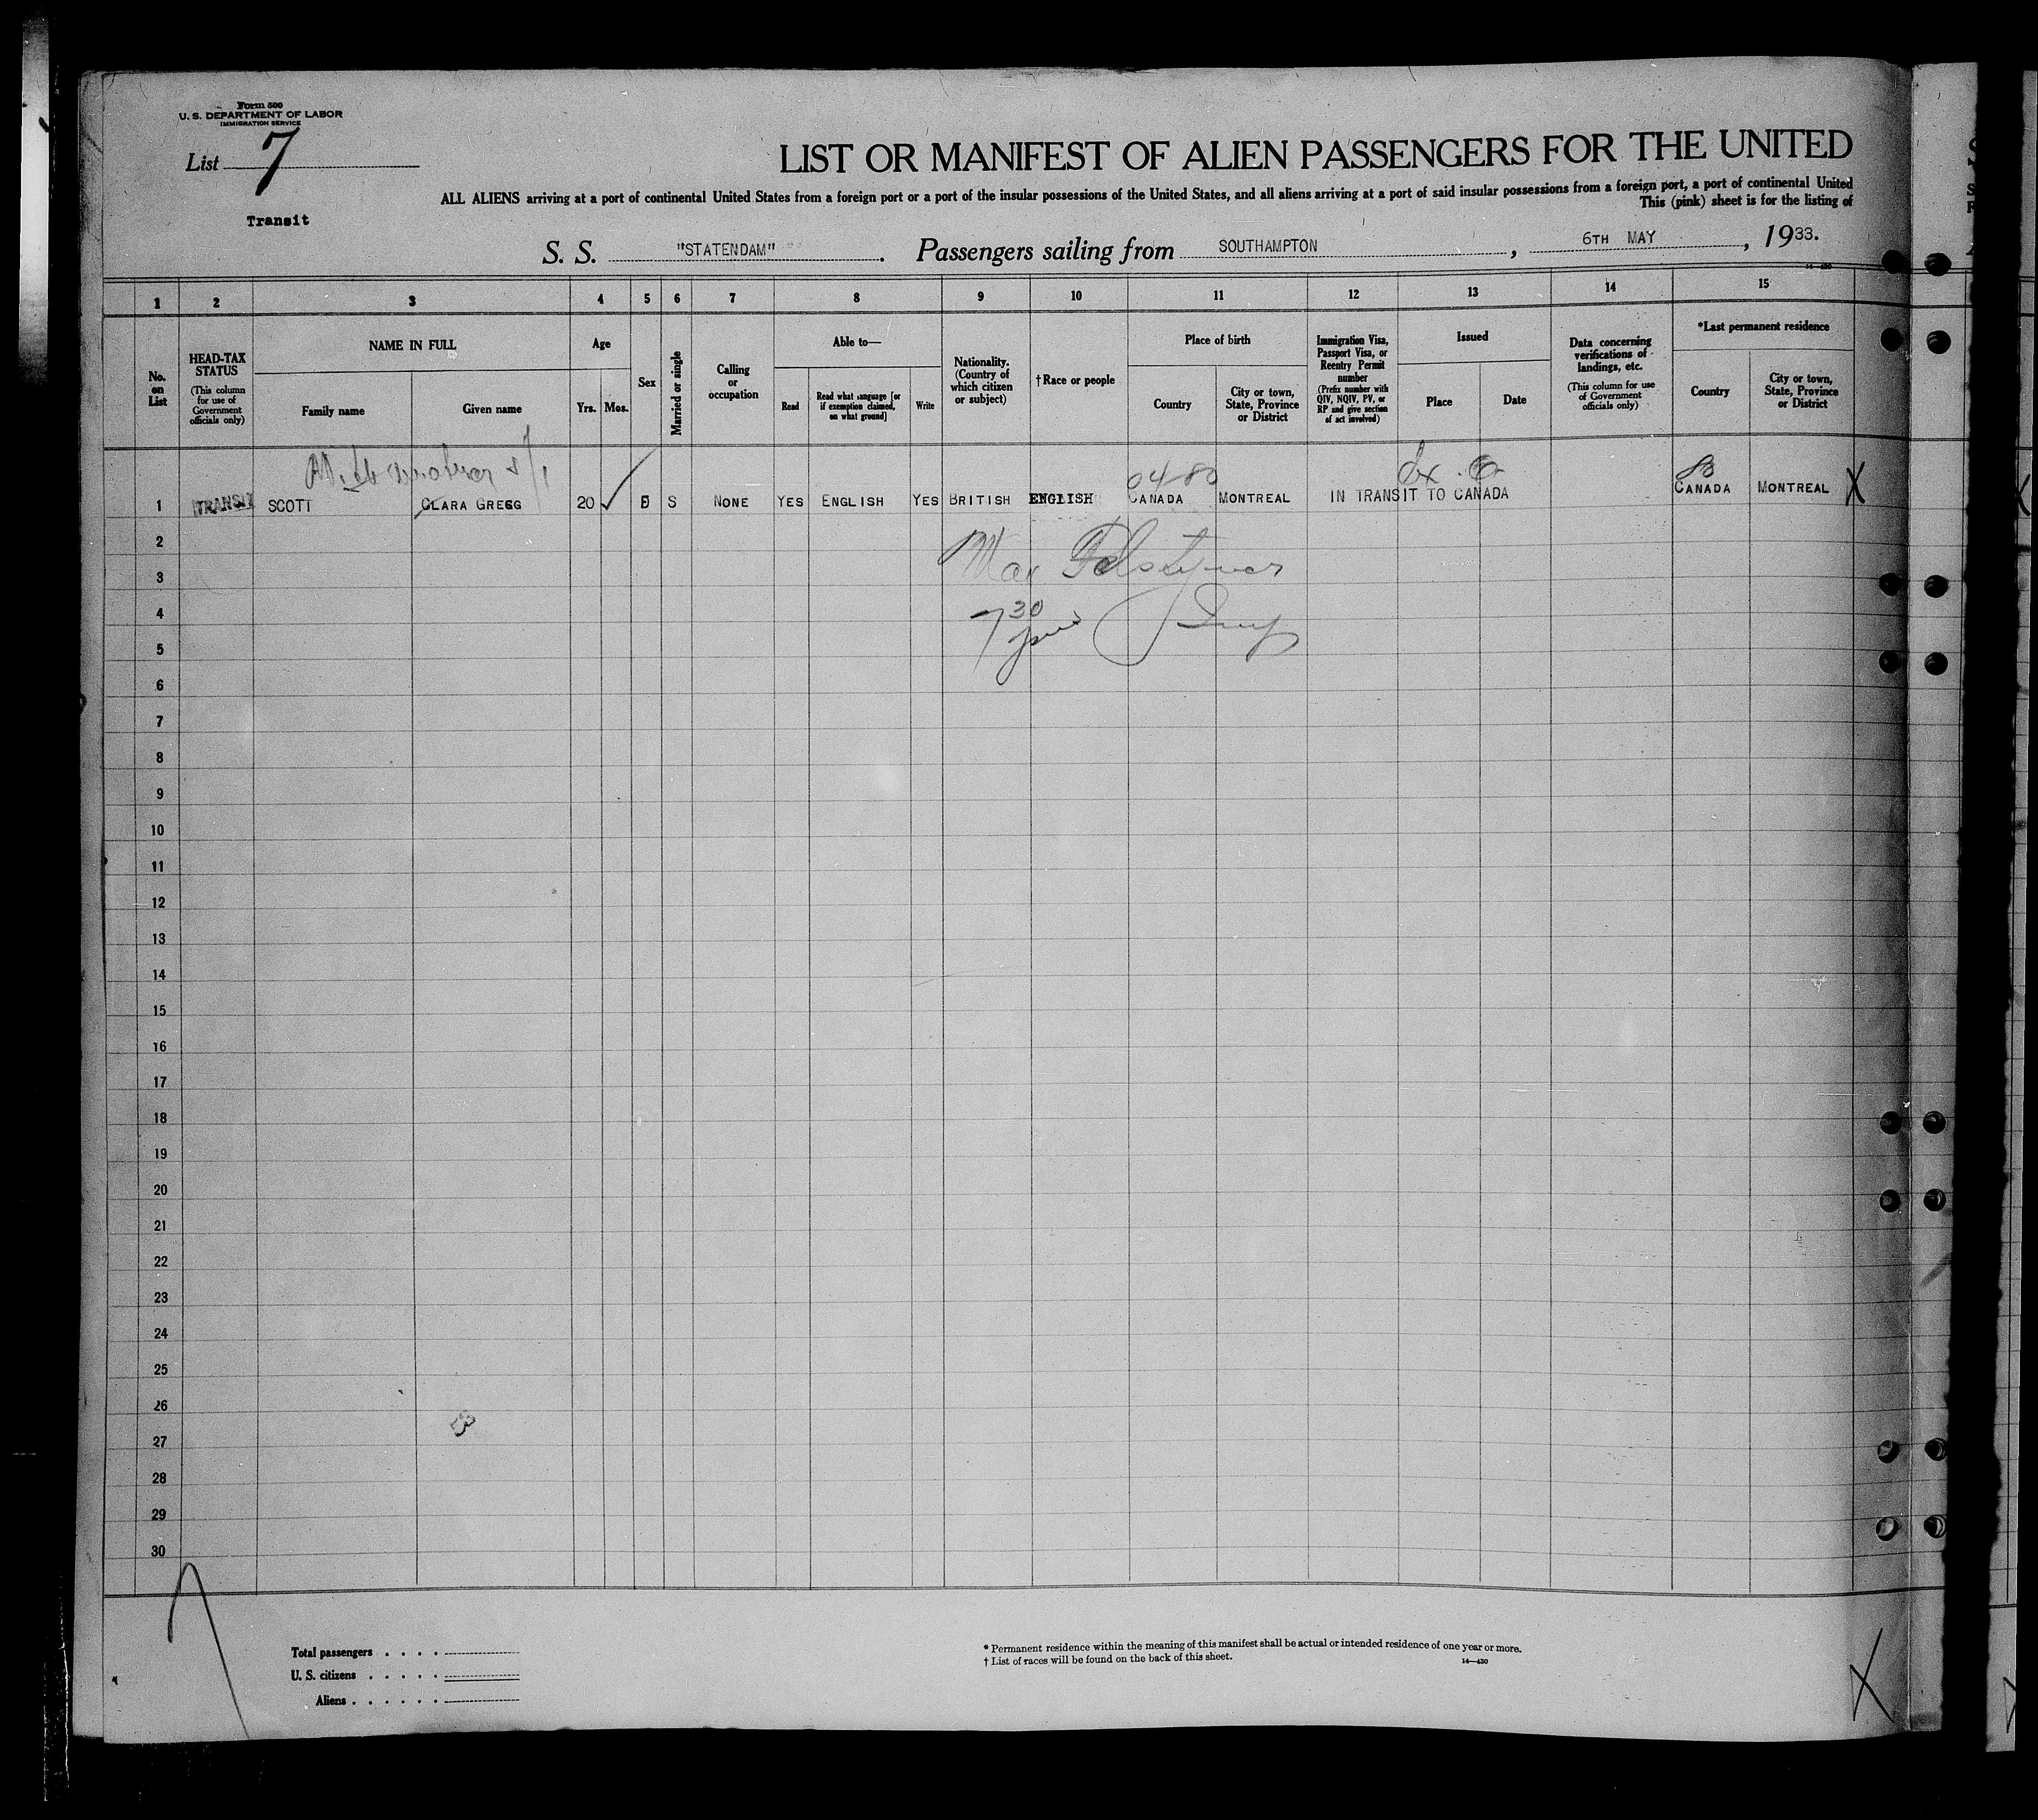 Form 500
U. S. DEPARTMENT OF LABOR
IMMIGRATION SERVICE
List 7
Transit
LIST OR MANIFEST OF ALIEN PASSENGERS FOR THE UNITED
ALL ALIENS arriving at a port of continental United States from a foreign port or a port of the insular possessions of the United States, and all aliens arriving at a port of said insular possessions from a foreign port, a port of continental United
This (pink) sheet is for the listing of
S. S. "STATENDAM". Passengers sailing from SOUTHAMPTON, 6TH MAY, 1933.
1 2 3 4 5 6 7 8 9 10 11 12 13 14 15
No. on List
HEAD-TAX STATUS
(This column for use of Government officials only)
NAME IN FULL
Family name
Given name
Age
Yrs.
Mos.
Sex
Married or single
Calling or occupation
Able to—
Read
Read what language [or if exemption claimed, on what ground]
Write
Nationality. (Country of which citizen or subject)
†Race or people
Place of birth
Country
City or town, State, Province or District
Immigration Visa, Passport Visa, or Reentry Permit number
(Prefix number with QIV, NQIV, PV, or RP and give section of act involved)
Issued
Place
Date
Data concerning verifications of landings, etc.
(This column for use of Government officials only)
*Last permanent residence
Country
City or town, State, Province or District
1 TRANSIT SCOTT CLARA GREGG 20 S NONE YES ENGLISH YES BRITISH ENGLISH CANADA MONTREAL IN TRANSIT TO CANADA CANADA MONTREAL X
2
Max
3
4
7 30
5
6
7
8
9
10
11
12
13
14
15
16
17
18
19
20
21
22
23
24
25
26
27
28
29
30
Total passengers
U. S. citizens
Aliens
* Permanent residence within the meaning of this manifest shall be actual or intended residence of one year or more.
† List of races will be found on the back of this sheet.
14—430
X